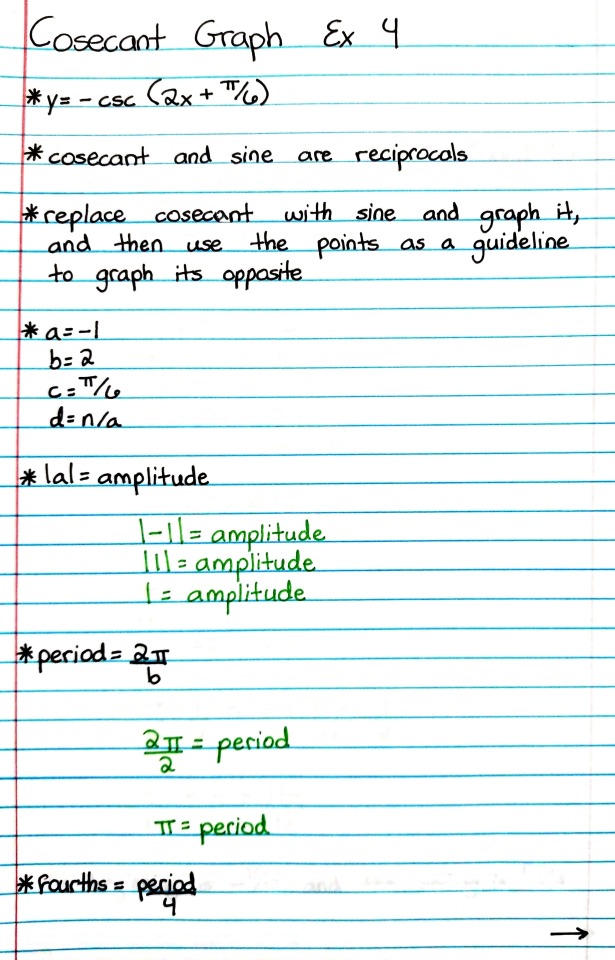 Cosecant Graph Ex 4
* y = - csc (2x + π/6)
* cosecant and sine are reciprocals
* replace cosecant with sine and graph it,
and then use the points as a guideline
to graph its opposite
* a = -1
b = 2
c = π/6
d = n/a
* |a| = amplitude
|-1| = amplitude
|1| = amplitude
1 = amplitude
* period = 2π/b
2π/2 = period
π = period
* Fourths = period/4
→